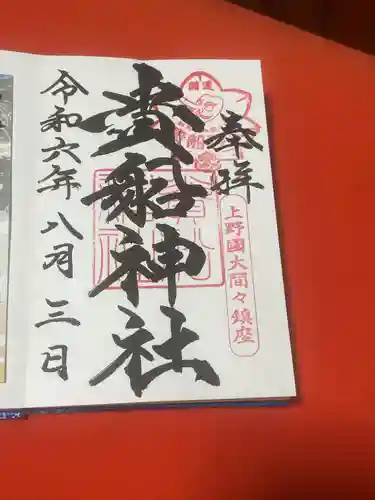 奉拝
上野國大間々鎮座
開運
貴船神社
令和六年八月三日